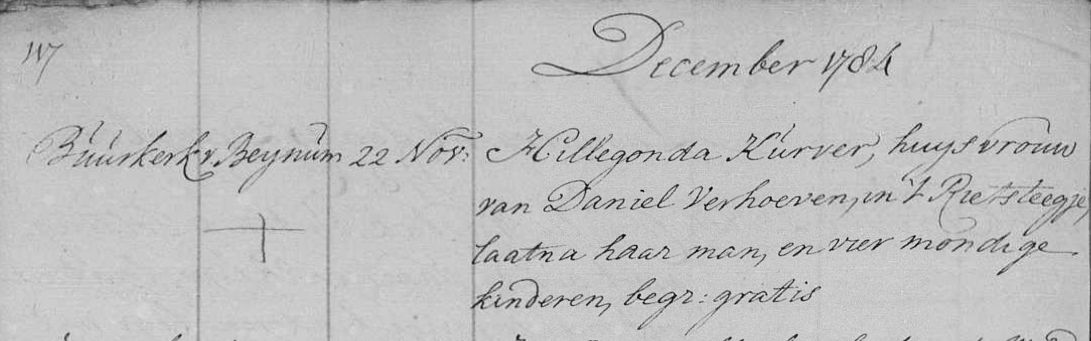 117
December 1784
Buurkerk v. Beynum 22 Nov: Hillegonda Kurver, huysvrouw
van Daniel Verhoeven, in 't Rietsteegje,
laat na haar man, en vier mondige
kinderen, begr: gratis